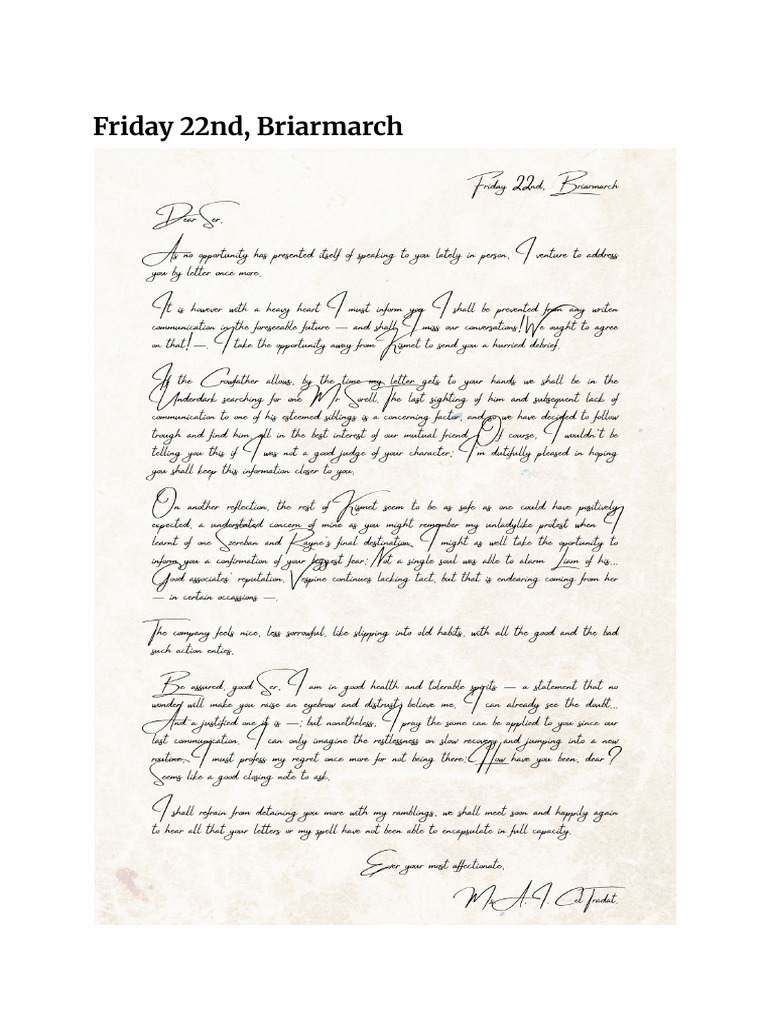 Friday 22nd, Briarmarch
Friday 22nd, Briarmarch
Dear Ser,
As no opportunity has presented itself of speaking to you lately in person, I venture to address
you by letter once more.
It is however with a heavy heart I must inform you I shall be prevented from any writen
communication in the foreseeable future — and shall I miss our conversations! We ought to agree
on that! —. I take the opportunity away from Kismet to send you a hurried debrief.
If the Crowfather allows, by the time my letter gets to your hands we shall be in the
Underdark searching for one Mr Sorell. The last sighting of him and subsequent lack of
communication to one of his esteemed siblings is a concerning factor, and so we have decided to follow
trough and find him, all in the best interest of our mutual friend. Of course, I wouldn't be
telling you this if I was not a good judge of your character; I'm dutifully pleased in hoping
you shall keep this information closer to you.
On another reflection, the rest of Kismet seem to be as safe as one could have positively
expected, a understated concern of mine as you might remember my unladylike protest when I
learnt of one Szereban and Rayne's final destination. I might as well take the oportunity to
inform you a confirmation of your biggest fear: Not a single soul was able to alarm Liam of his...
Good associates' reputation. Vespine continues lacking tact, but that is endearing coming from her
— in certain occassions —.
The company feels nice, less sorrowful, like slipping into old habits, with all the good and the bad
such action enties.
Be assured, good Ser, I am in good health and tolerable spirits — a statement that no
wonder will make you raise an eyebrow and distrust, believe me, I can already see the doubt...
And a justified one it is —; but nonetheless, I pray the same can be applied to you since our
last communication. I can only imagine the restlessness on slow recovery and jumping into a new
routine. I must profess my regret once more for not being there; How have you been, dear?
Seems like a good closing note to ask.
I shall refrain from detaining you more with my ramblings, we shall meet soon and happily again
to hear all that your letters or my spell have not been able to encapsulate in full capacity.
Ever your most affectionate,
A. I. Cel Tradat.